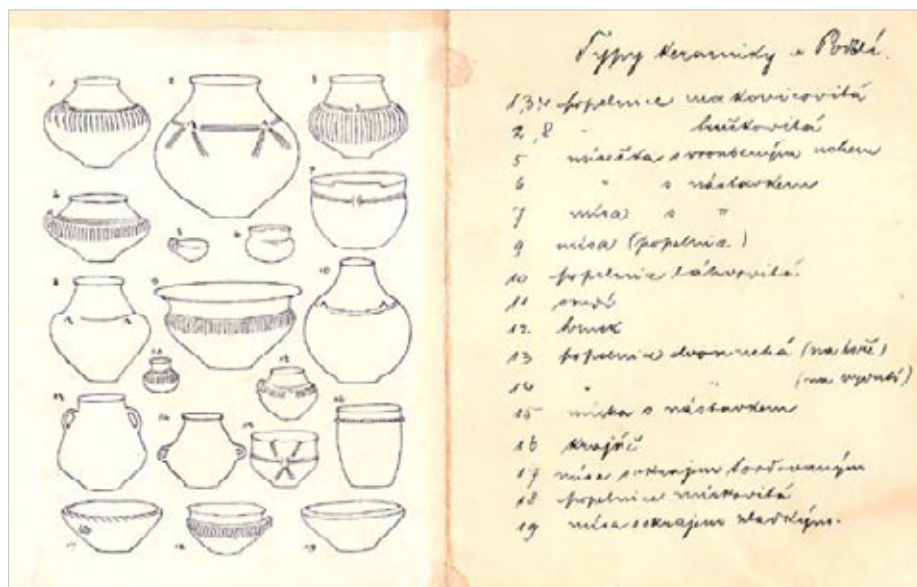 1 2 3
4 7
5 6
8 9 10
11 12
13 14 15 16
17 18 19
Typy keramiky
1,3,4 popelnice makovicovitá
2,8 " hruškovitá
5 mísečka s uchem
6 " s nástavkem
7 mísa s "
9 mísa
10 popelnice láhvovitá
11
12 hrnek
13 popelnice dvouuchá (na hoře)
14 " " (na vydutí)
15 miska s nástavkem
16 krajáč
17 mísa s okrajem tordovaným
18 popelnice miskovitá
19 mísa s okrajem hladkým.